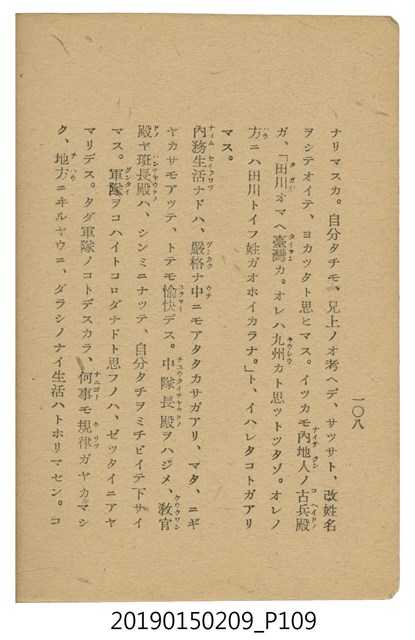 一〇八
ナリマスカ。自分タチモ、兄上ノオ考ヘデ、サツサト、改姓名
ヲシテオイテ、ヨカツタト思ヒマス。イツカモ內地人ノ古兵殿
ガ、「田川オマヘ臺灣カ。オレハ九州カト思ツトツタゾ。オレノ
方ニハ田川トイフ姓ガオホイカラナ。」ト、イハレタコトガアリ
マス。
內務生活ナドハ、嚴格ナ中ニモアタタカサガアリ、マタ、ニギ
ヤカサモアツテ、トテモ愉快デス。中隊長殿ヲハジメ、敎官
殿ヤ班長殿ハ、シンミニナツテ、自分タチヲミチビイテ下サイ
マス。軍隊ヲコハイトコロダナドト思フノハ、ゼツタイニアヤ
マリデス。タダ軍隊ノコトデスカラ、何事モ規律ガヤカマシ
ク、地方ニヰルヤウニ、ダラシノナイ生活ハトホリマセン。コ
20190150209_P109